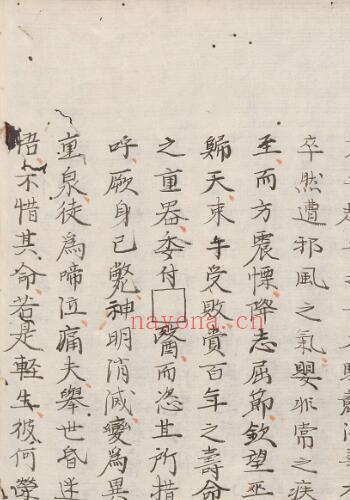 卒然遭邪風之氣嬰非常之疾
至而方震慄降志屈節欽望巫
歸天束手受敗賞百年之壽命
之重器委付醫而恣其所措
呼厥身已斃神明消滅變為異
重泉徒為啼泣痛夫舉世昏迷
悟不惜其命若是輕生彼何榮
nayona.cn